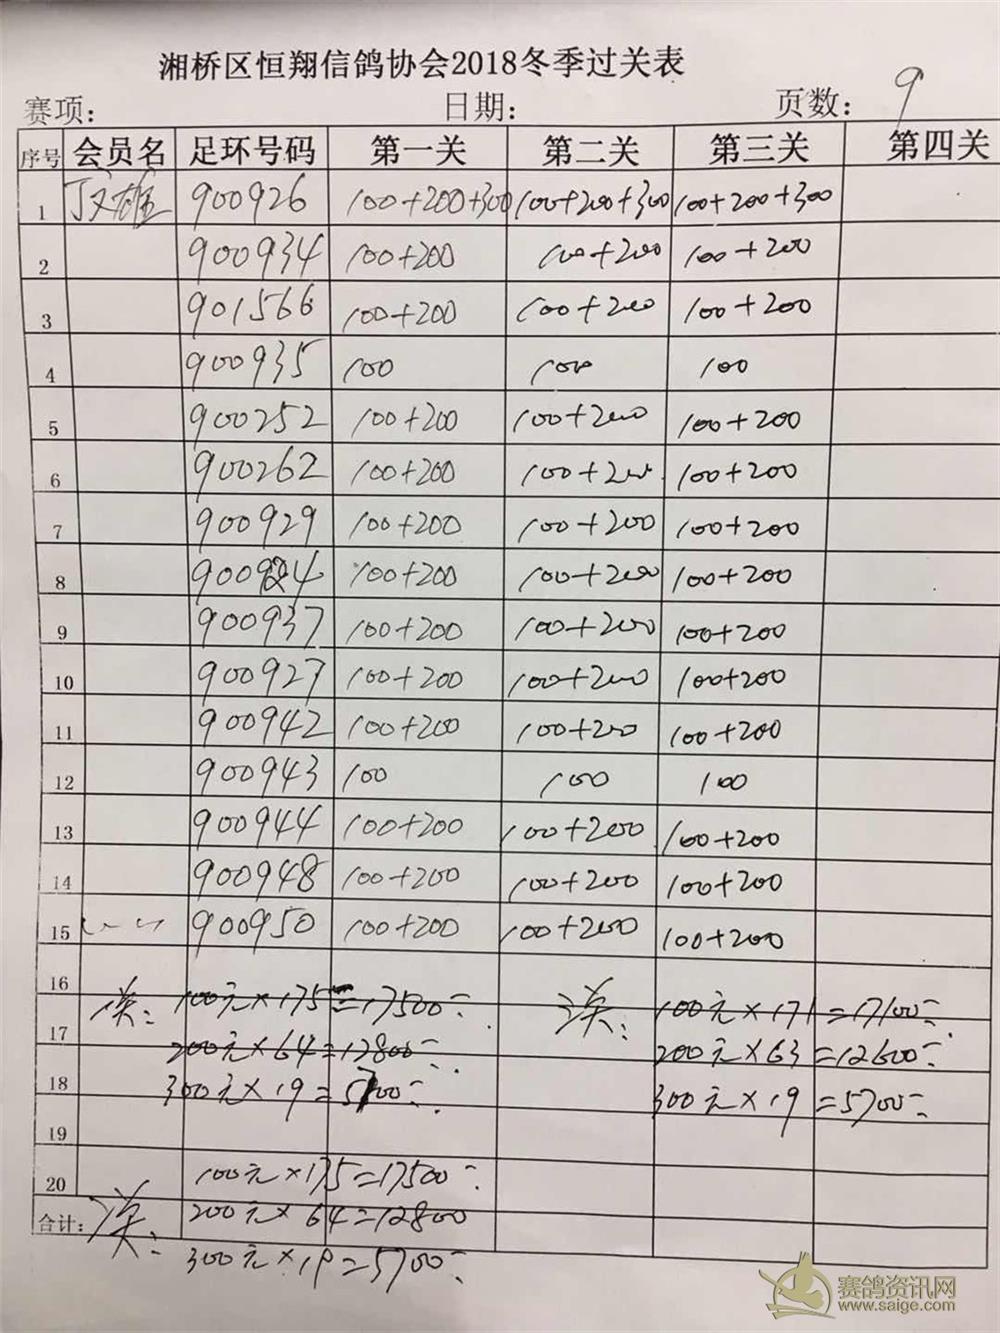 湘桥区恒翔信鸽协会2018冬季过关表
赛项: 日期: 页数: 9
序号 会员名 足环号码 第一关 第二关 第三关 第四关
1 900926 100+200+300 100+200+300 100+200+300
2 900934 100+200 100+200 100+200
3 901566 100+200 100+200 100+200
4 900935 100 100 100
5 900252 100+200 100+200 100+200
6 900262 100+200 100+200 100+200
7 900929 100+200 100+200 100+200
8 100+200 100+200 100+200
9 900937 100+200 100+200 100+200
10 900927 100+200 100+200 100+200
11 900942 100+200 100+200 100+200
12 900943 100 100 100
13 900944 100+200 100+200 100+200
14 900948 100+200 100+200 100+200
15 900950 100+200 100+200 100+200
16 100元×175=17500 100元×171=17100
17 200元×64=12800 200元×63=12600
18 300元×19=5700 300元×19=5700
19
20 100元×175=17500
合计: 200元×64=12800
300元×19=5700
赛鸽资讯网
www.saige.com